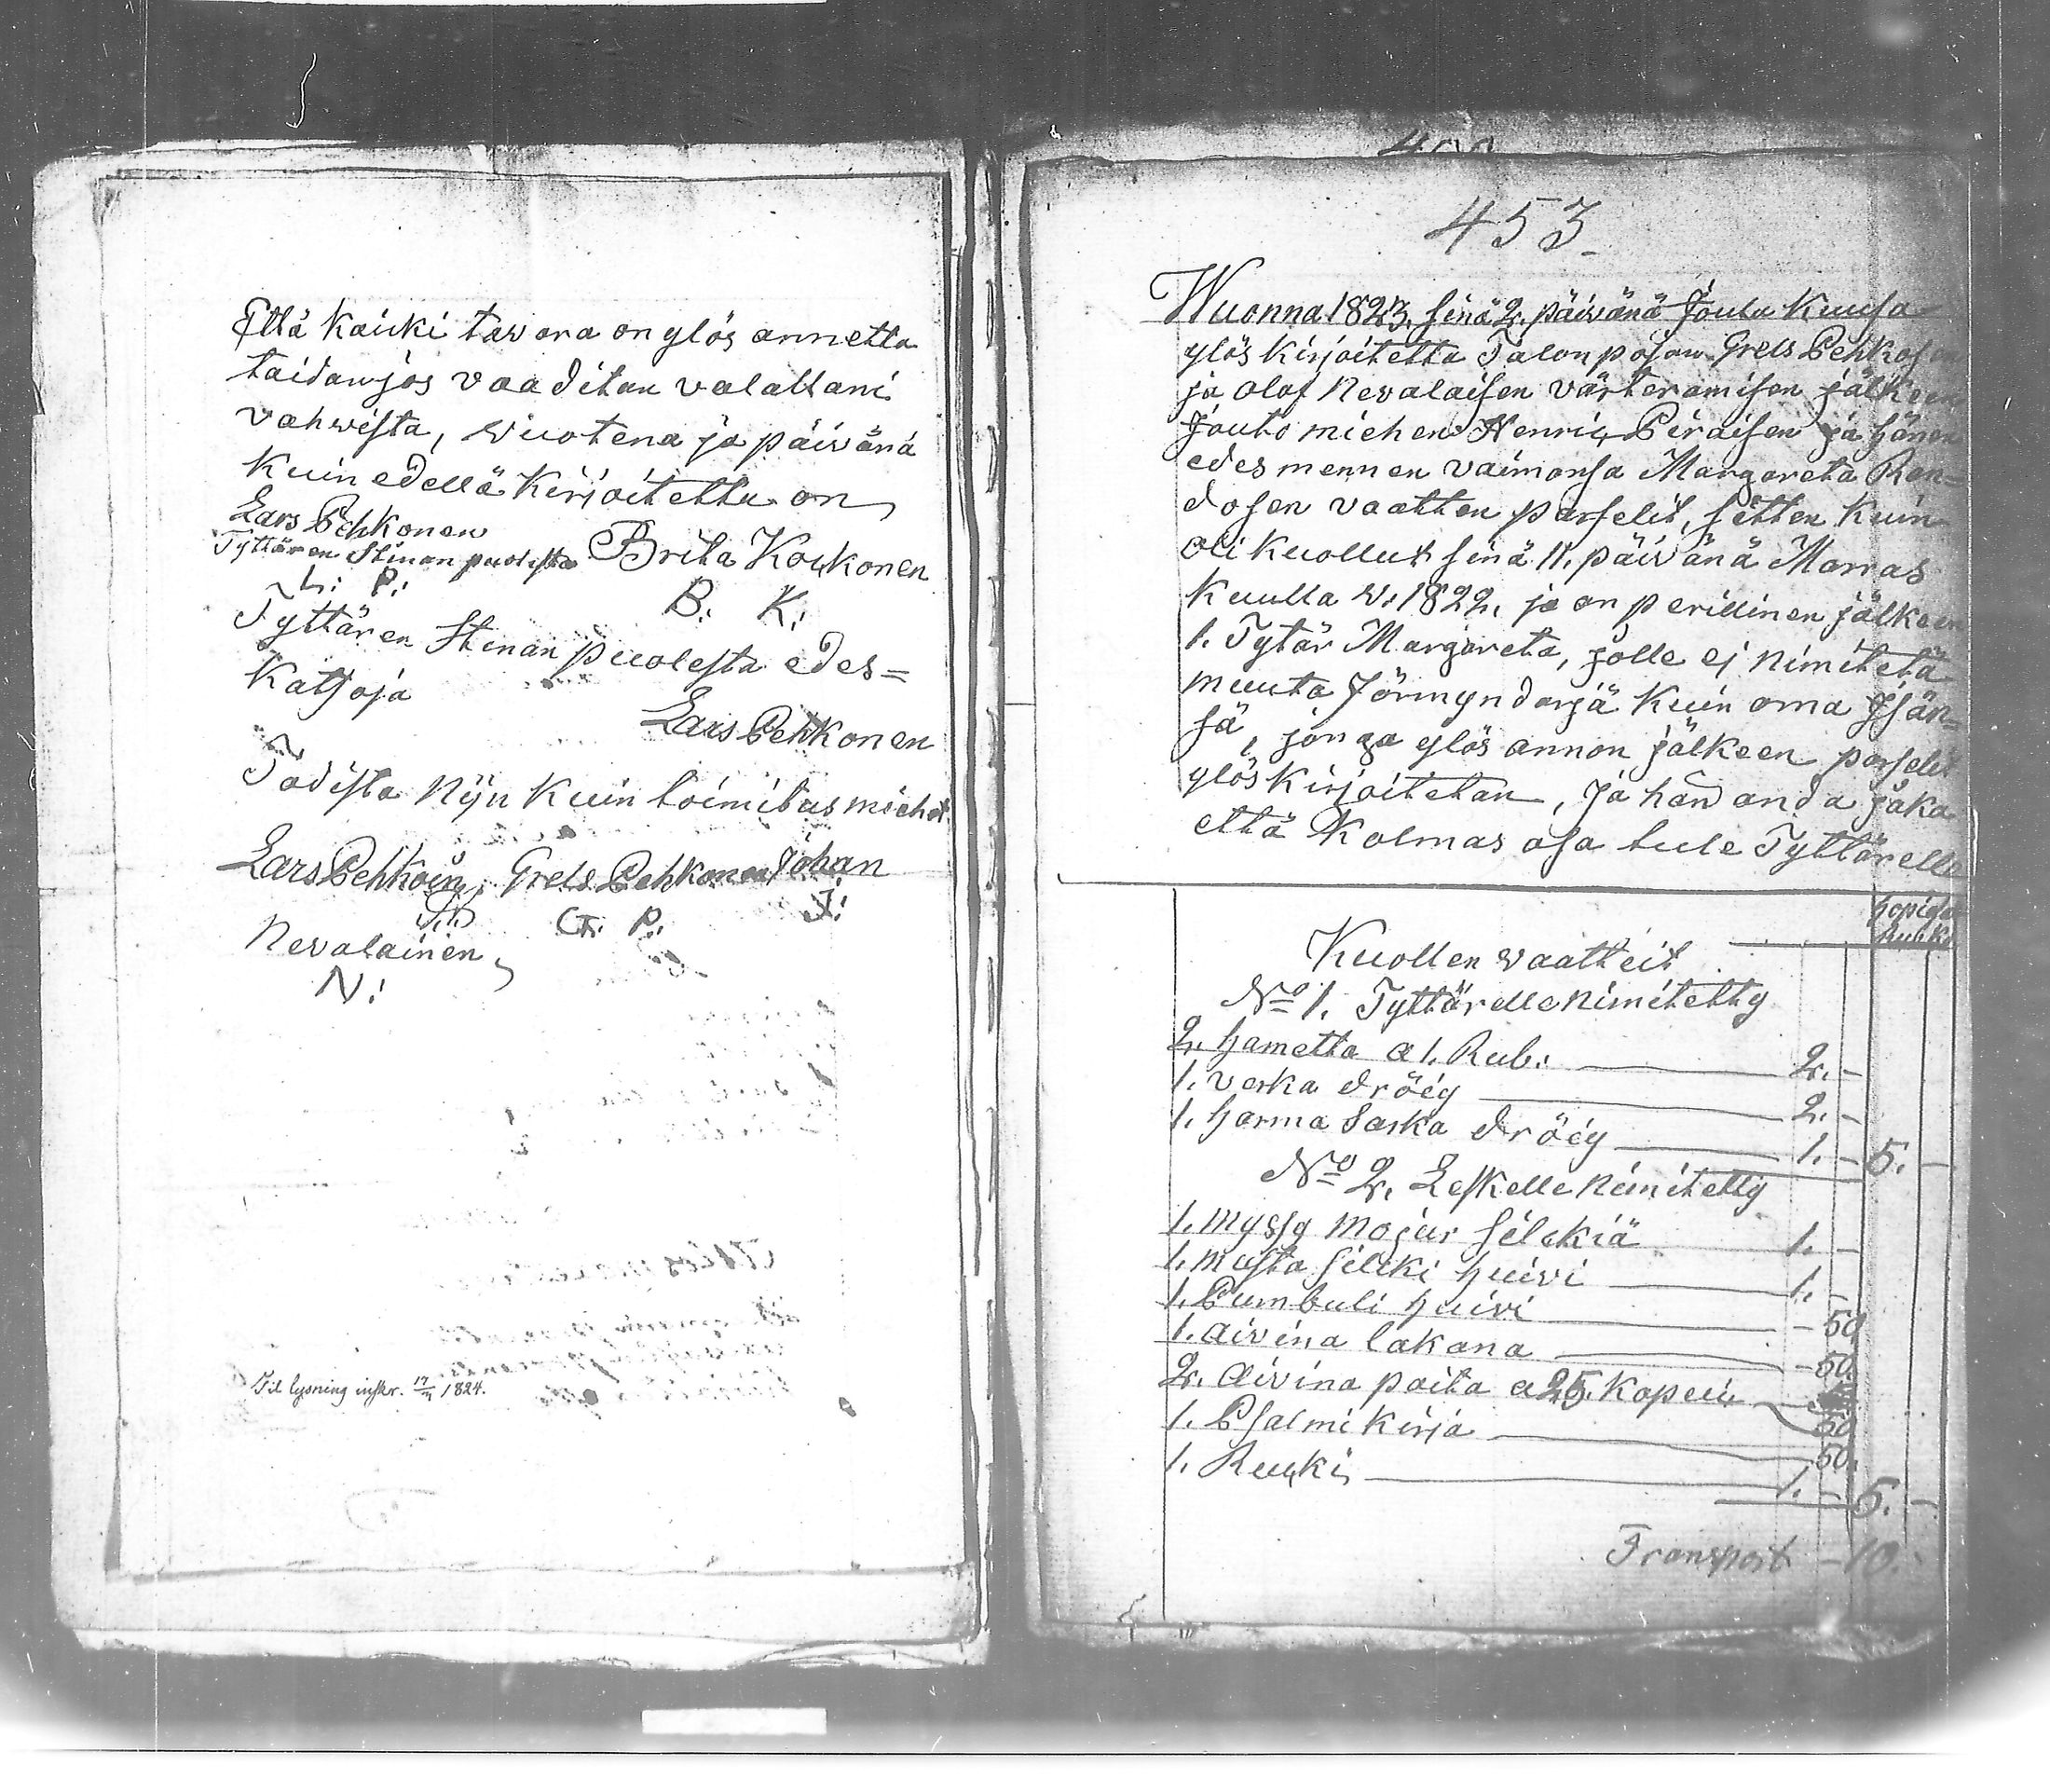 Että kaicki tavara on ylös annettu
taidan jos vaaditan valallani
vahwista, wuotena ja päivänä
kuin edellä kirjoitettu on
Lars Pehkonen
Tyttären Stinan puolesta Brita Kockonen
L: P:
B: K:
Tyttären Stinan puolesta edes=
katsoja
Lars Pehkonen
Todista nijn kuin toimitus miehet
Lars Pehkoin, Grels Pehkonen Johan
G: P. J:
Nevalainen,
N:
Til lysning inskr. 1824.
453
Wuonna 1823. sinä 2. päivänä Joulu Kuusa
ylös kirjoitettu Talonpojan Grels Pehkosen
ja Olof Nevalaisen värteramisen jälkeen
Jouto miehen Henric Piraisen ja hänen
edes mennen vaimonsa Margareta Ron=
dosen vaatten parselit, sitten kuin
oli kuollut sinä 11. päivänä Marras
Kuulla W: 1822. ja on perillinen jälkeen
1. Tytär Margareta, jolle ej nimitetä
muuta Förmyndarjä kuin oma Jsän=
sä, jonga ylös annon jälkeen parselit
ylös kirjoitetan, ja hän anda jaka
että Kolmas osa tule Tyttärelle
hopiasa
Rub. Ko
Kuollen vaatteit
No 1. Tyttärelle nimitetty
2. hametta a 1. Rub: 2. -
1. verka dröijy 2. -
1. harma sarka dröijy 1. - 5. -
No 2. Leskelle nimitetty
1. myssy mojur silckiä 1. -
1. musta silcki huivi 1. -
1. Pumbuli huivi - 50
1. aivina lakana - 50.
2. aivina paita a 25. kopeic 50
1. Psalmi kirja 50.
1. Rucki 1. - 5. -
Transport - 10. -